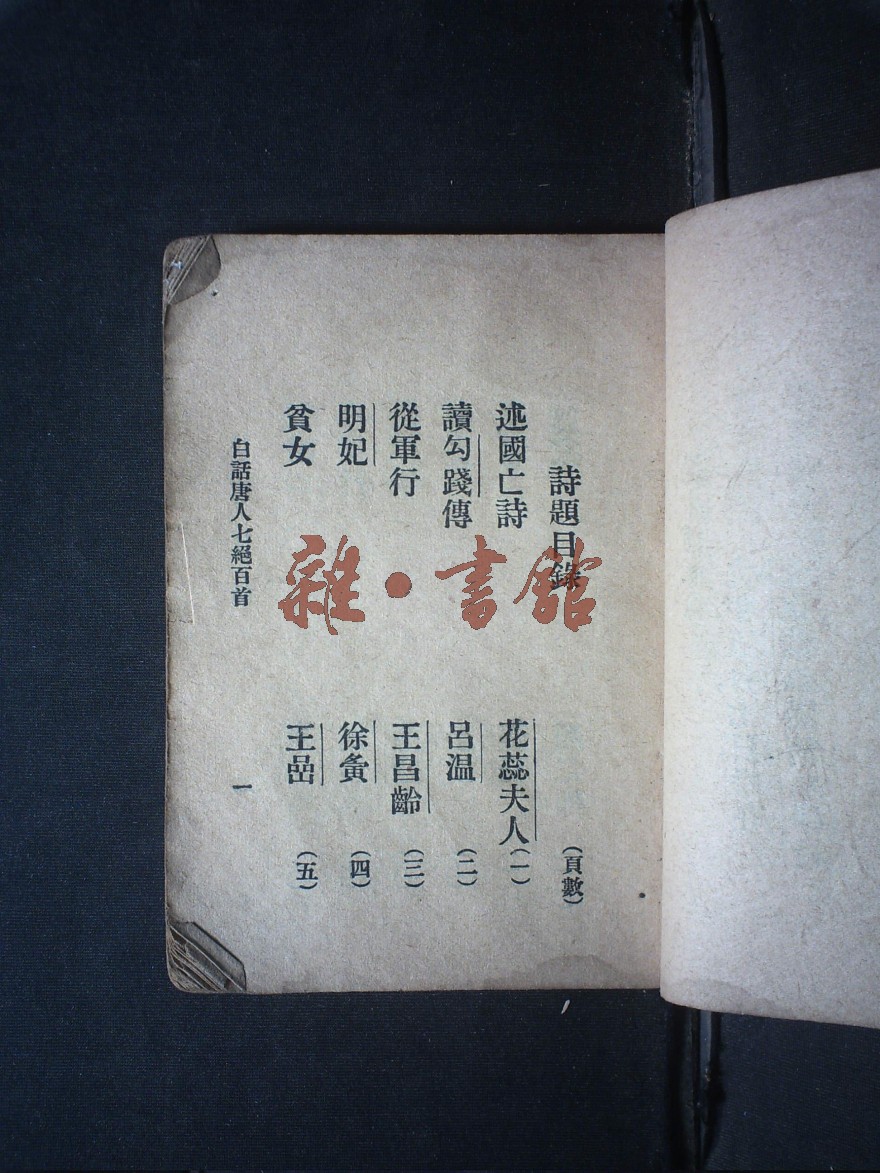 詩題目錄
(頁數)
述國亡詩 花蕊夫人 (一)
讀勾踐傳 呂温 (二)
從軍行 王昌齡 (三)
明妃 徐夤 (四)
貧女 王嵒 (五)
白話唐人七絕百首 一
雜·書館